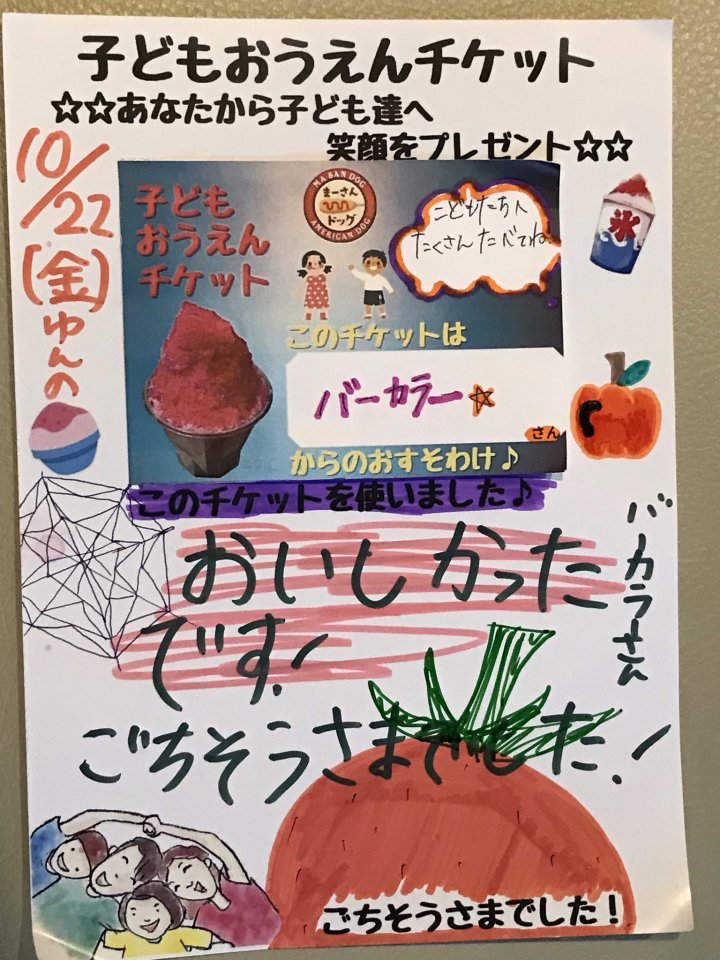 子どもおうえんチケット
☆☆あなたから子ども達へ
笑顔をプレゼント☆☆
10/22
(金)ゆんの
子ども
おうえん
チケット
MA SAN DOG
まーさん
ドッグ
AMERICAN DOG
こどもたちへ
たくさんたべてね。
氷
このチケットは
バーカラー☆
さん
からのおすそわけ♪
このチケットを使いました♪
バーカラーさん
おいしかった
です!
ごちそうさまでした!
ごちそうさまでした!